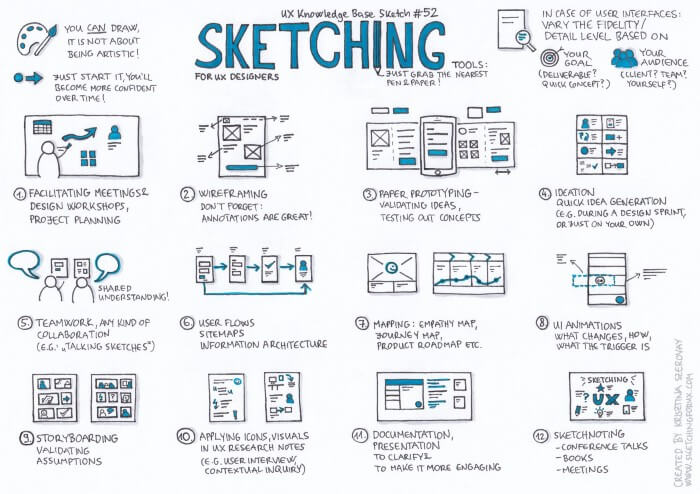 UX Knowledge Base Sketch #52
SKETCHING
FOR UX DESIGNERS
TOOLS:
JUST GRAB THE NEAREST
PEN & PAPER!
YOU CAN DRAW,
IT IS NOT ABOUT
BEING ARTISTIC!
JUST START IT, YOU'LL
BECOME MORE CONFIDENT
OVER TIME!
IN CASE OF USER INTERFACES:
VARY THE FIDELITY/
DETAIL LEVEL BASED ON
YOUR
GOAL
(DELIVERABLE?
QUICK CONCEPT?)
YOUR
AUDIENCE
(CLIENT? TEAM?
YOURSELF?)
1. FACILITATING MEETINGS &
DESIGN WORKSHOPS,
PROJECT PLANNING
2. WIREFRAMING
DON'T FORGET:
ANNOTATIONS ARE GREAT!
3. PAPER PROTOTYPING –
VALIDATING IDEAS,
TESTING OUT CONCEPTS
4. IDEATION
QUICK IDEA GENERATION
(E.G. DURING A DESIGN SPRINT,
OR JUST ON YOUR OWN)
SHARED
UNDERSTANDING!
5. TEAMWORK, ANY KIND OF
COLLABORATION
(E.G.: „TALKING SKETCHES")
6. USER FLOWS
SITEMAPS
INFORMATION ARCHITECTURE
7. MAPPING: EMPATHY MAP,
JOURNEY MAP,
PRODUCT ROADMAP ETC.
8. UI ANIMATIONS
WHAT CHANGES, HOW,
WHAT THE TRIGGER IS
9. STORYBOARDING
VALIDATING
ASSUMPTIONS
10. APPLYING ICONS, VISUALS
IN UX RESEARCH NOTES
(E.G. USER INTERVIEW,
CONTEXTUAL INQUIRY)
11. DOCUMENTATION,
PRESENTATION
TO CLARIFY &
TO MAKE IT MORE ENGAGING
SKETCHING
UX
12. SKETCHNOTING
- CONFERENCE TALKS
- BOOKS
- MEETINGS
CREATED BY KRISZTINA SZEROVAY
WWW.SKETCHINGFORUX.COM